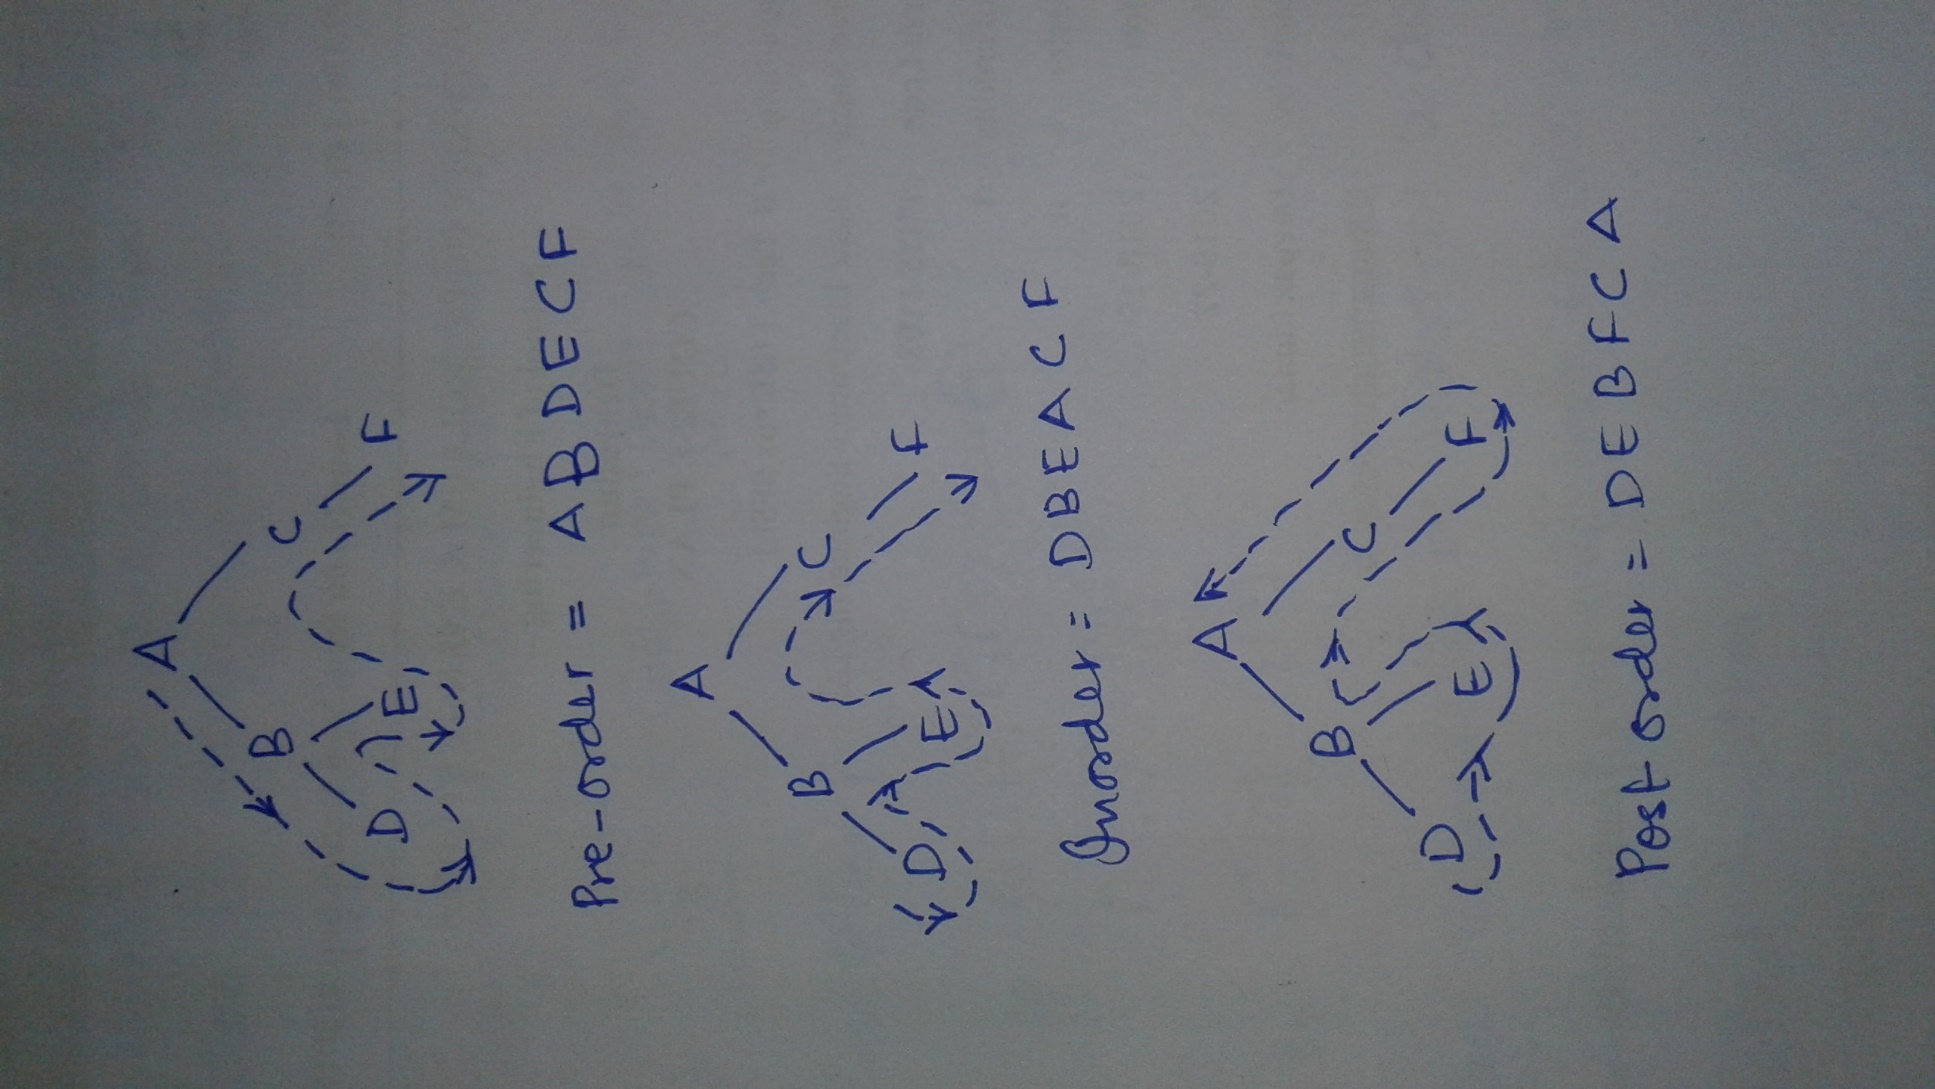 A
B C
D E F
Pre-order = A B D E C F
A
B C
D E F
Inorder = D B E A C F
A
B C
D E F
Post order = D E B F C A